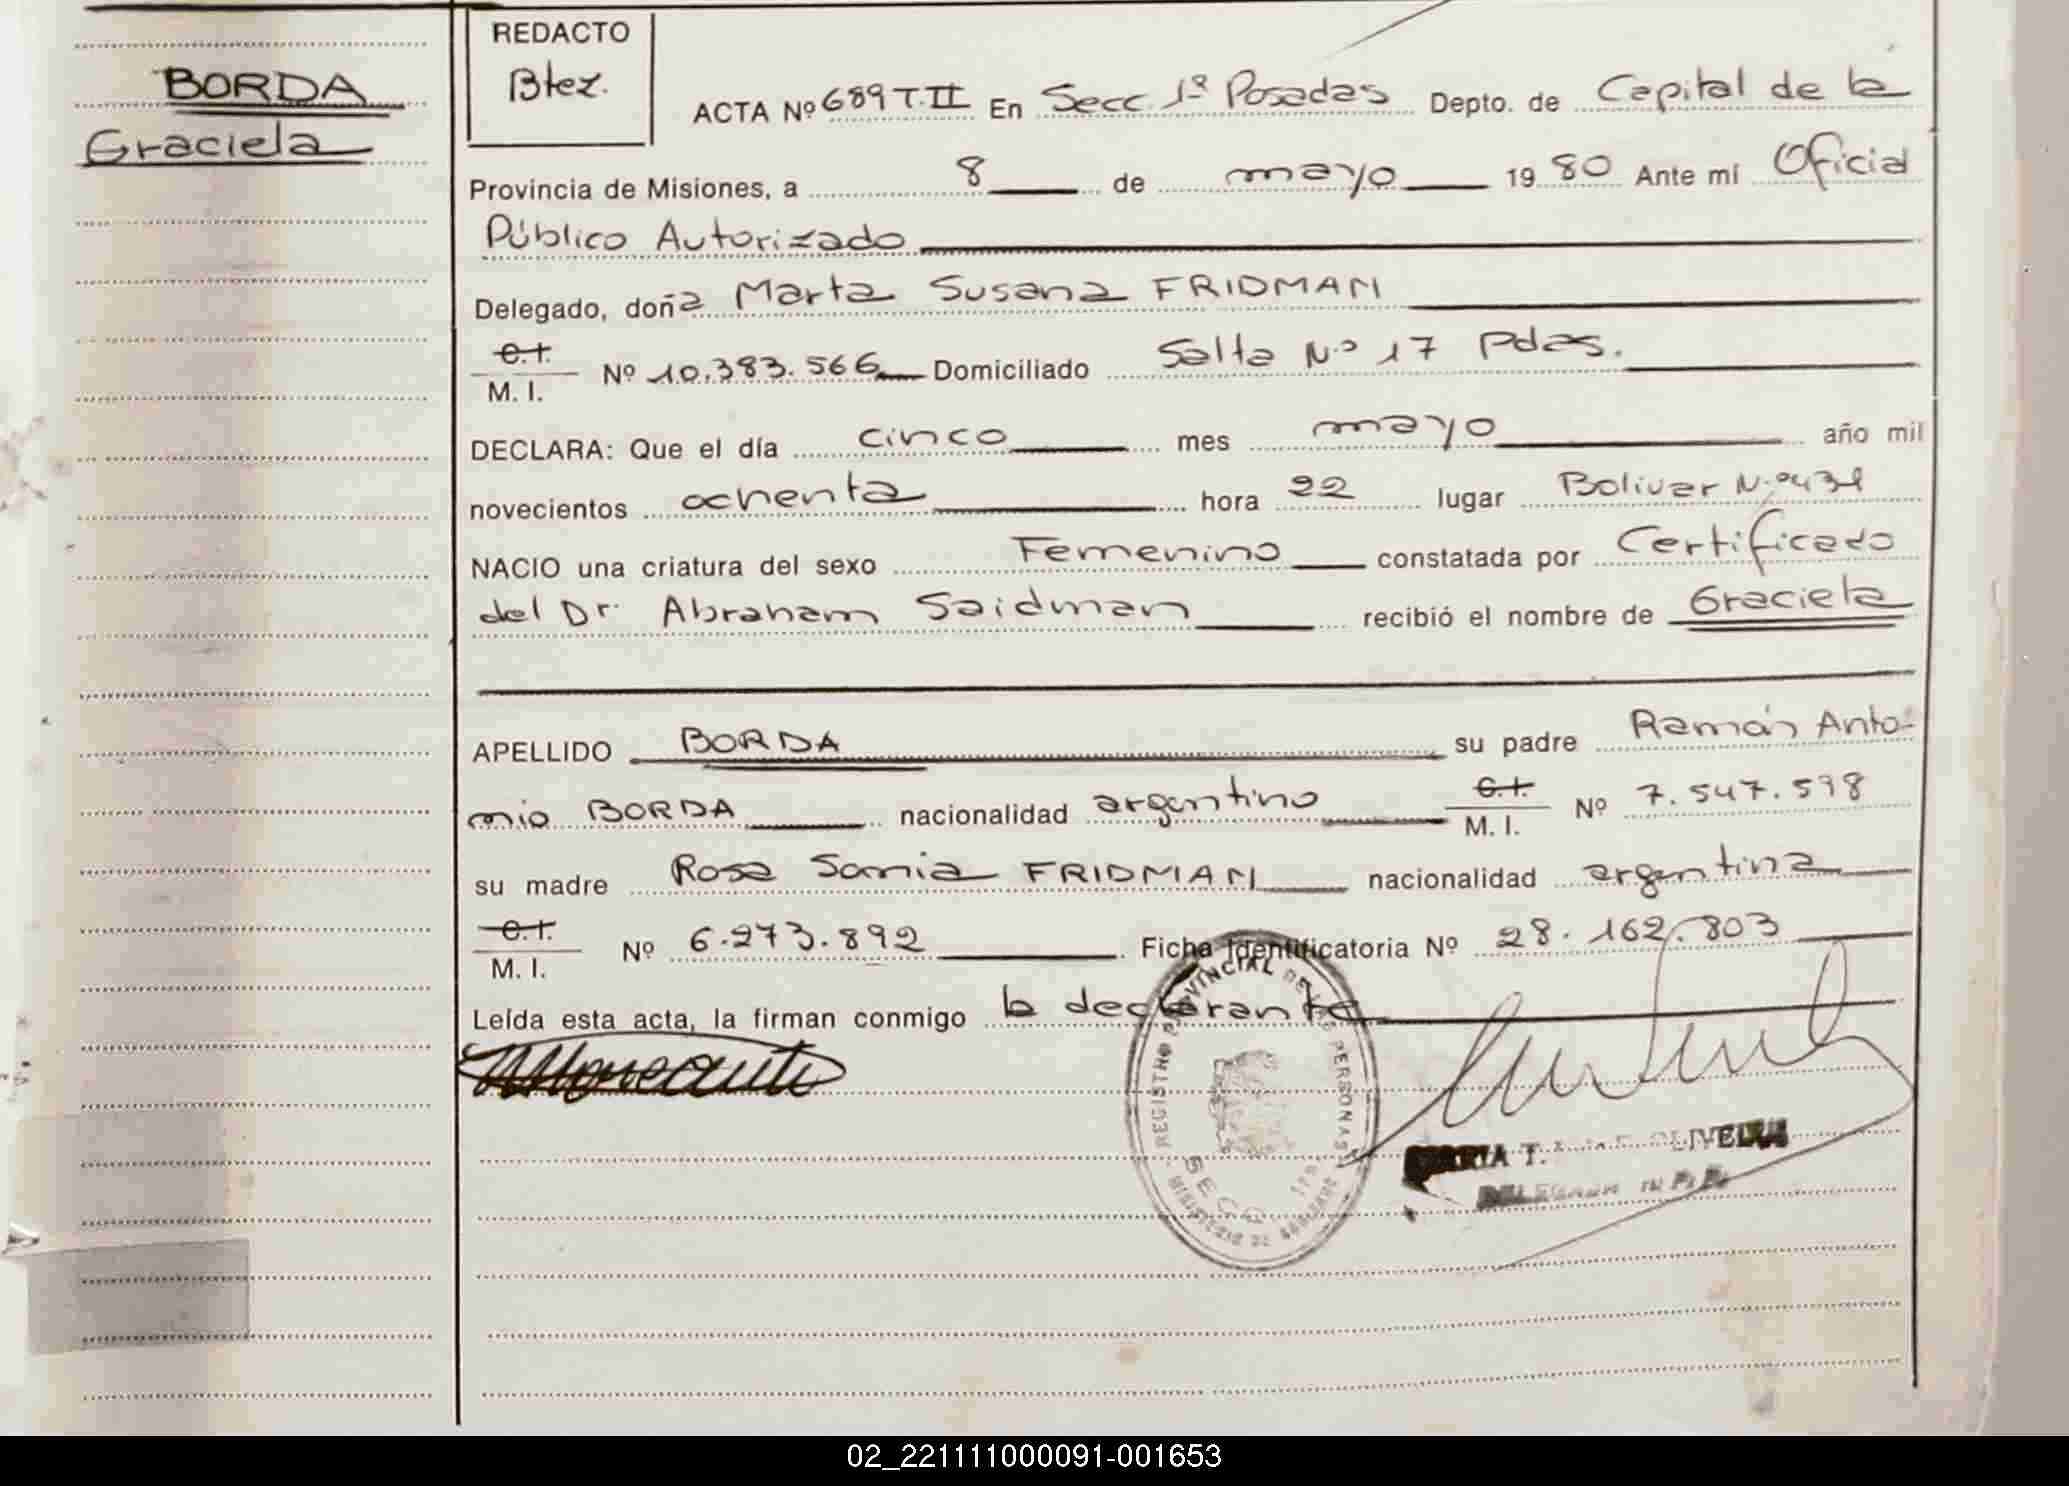 BORDA
Graciela
REDACTO
Btez.
ACTA Nº 689 T.II En Secc. 1ª Posadas Depto. de Capital de la
Provincia de Misiones, a 8 de mayo 1980 Ante mí Oficial
Público Autorizado
Delegado, doña Marta Susana FRIDMAN
C.I.
M. I. Nº 10.383.566 Domiciliado Salta Nº 17 Pdas.
DECLARA: Que el día cinco mes mayo año mil
novecientos ochenta hora 22 lugar Bolivar Nº
NACIO una criatura del sexo Femenino constatada por Certificado
del Dr. Abraham Saidman recibió el nombre de Graciela
APELLIDO BORDA su padre Ramón Anto-
nio BORDA nacionalidad argentino C.I. M. I. Nº 7.547.598
su madre Rosa Sonia FRIDMAN nacionalidad argentina
C.I.
M. I. Nº 6.273.892 Ficha Identificatoria Nº 28.162.803
Leída esta acta, la firman conmigo la declarante
REGISTRO PROVINCIAL DE LAS PERSONAS
MINISTERIO DE GOBIERNO
SECC
02_221111000091-001653